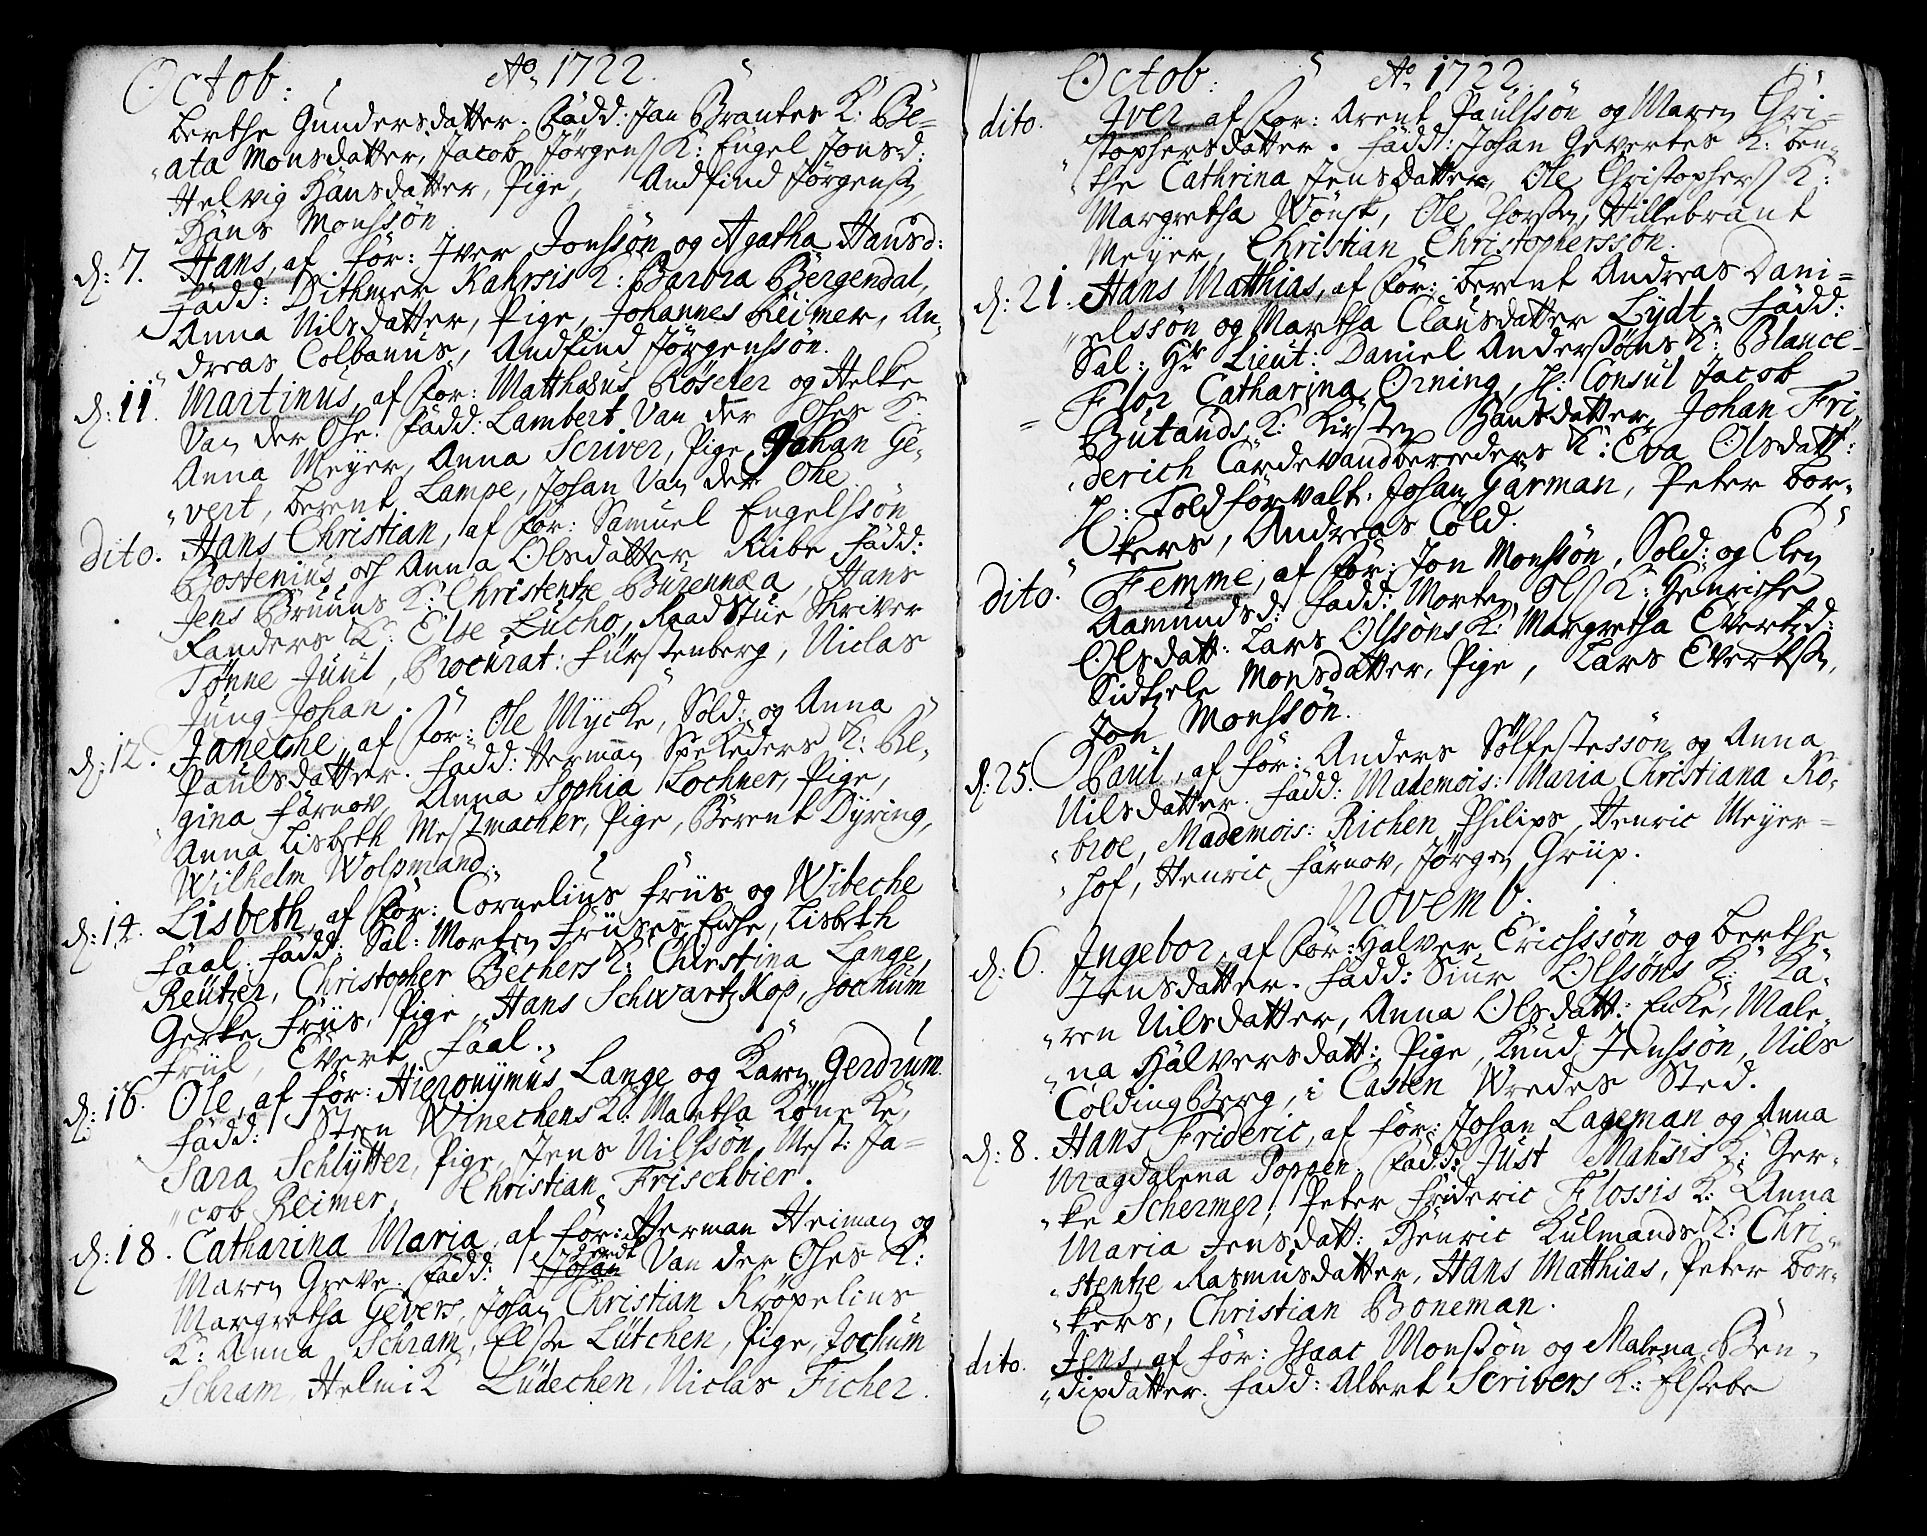 Octob: Ao 1722.
Berthe Gundersdatter. Fadd: Jan Brantes K: Be=
ata Monsdatter, Jacob Jørgens K: Engel Jonsd:
Helvig Hansdatter, Pige, Andfind Jørgenss.
Hans Monssøn.
d: 7. Hans, af For: Iver Jonssøn og Agatha Hansd:
Fadd: Dithmer Kahrsis K: Barbra Bergendal,
Anna Nilsdatter, Pige, Johannes Reimer, An,
dreas Colbanus, Andfind Jørgenssøn.
d: 11. Martinus, af For: Matthæus Røseler og Helke
Van der Ohe. Fadd: Lambert Van der Ohes K:
Anna Meyer, Anna Scriver, Pige, Johan Ge,
vert, Berent Lampe, Johan Van der Ohe.
dito. Hans Christian, af For: Samuel Engelssøn
Bostenius och Anna Olsdatter Riibe Fadd:
Jens Bruuns K: Christentze Buzennæa, Hans
Randers K: Else Lucho, Raadstue Skriver
Tønne Juul, Procurat: Fürstenberg, Niclas
Jung Johan.
d: 12. Janeche, af For: Ole Mycke, Sold: og Anna
Paulsdatter. Fadd: Herman Spekeders K: Re,
gina Farnov, Anna Sophia Lochner, Pige,
Anna Lisbeth Mestmacher, Pige, Berent Dyring,
Wilhelm Wolpmand.
d: 14. Lisbeth, af For: Cornelius Friis og Wibeche
Faal. Fadd: Sal: Morten Friises Enche, Lisbeth
Reutzer, Christopher Bechers K: Chrestina Lange,
Gerke Friis, Pige, Hans Schwartzkop, Jochum
Friil, Evert Faal.
d: 16. Ole, af For: Hieronymus Lange og Karen Gerdrum.
Fadd: Sten Winechens K: Martha Køneke,
Sara Schlytter, Pige, Jens Nilssøn, Mest: Ja=
cob Reimer, Christian Frischbier.
d: 18. Catharina Maria, af For: Herman Heiman og
Maren Greve. Fadd: Johan Gerdt Van der Ohes K:
Margretha Gevers, Johan Christian Krøpelius
K: Anna Schram, Elsse Lütchen, Pige, Jochum
Schram, Helmik Lüdechen, Niclas Ficher.
Octob: Ao 1722.
dito. Iver, af For: Arent Paulssøn og Maren Chri=
stophersdatter. Fadd: Johan Gevertes K: Ben,
the Cathrina Jensdatter, Ole Christophers K:
Margretha Wønsk, Ole Thorsen, Hillebrant
Meyer, Christian Christophersson.
d: 21. Hans Matthias, af For: Berent Andreas Dani=
elssøn og Martha Clausdatter Lydt. Fadd:
Sal: Hr Lieut: Daniel Anderssøns K: Blance=
Flor Catharina Orning, H: Consul Jacob
Butauds K: Kirsten Hansdatter, Johan Fri
derich Cardevandbereders K: Eva Olsdatt:
H: Toldforvalt: Johan Garman, Peter Bor,
kers, Andreas Cold.
dito. Femme, af For: Jon Monssøn, Sold: og Elen
Aamundsd: Fadd: Morten Ols K: Henriche
Olsdatt: Lars Olssøns K: Margretha Evertzd:
Sidtzele Monsdatter, Pige, Lars Evertss,
Jon Monssøn.
d: 25. Paul, af For: Anders Sølfestessøn og Anna
Nilsdatter. Fadd: Mademois: Maria Christiana Ro,
broe, Mademois: Richen Philips, Henric Meyer=
hof, Henric Farnov, Jørgen Gruip.
Novemb.
d: 6. Ingebor, af For: Halver Ericssøn og Berthe
Jensdatter. Fadd: Siur Olssøns K: Ka,
ren Nilsdatter, Anna Olsdatt: Encke, Male,
na Halversdatt: Pige, Knud Jenssøn, Nils
Coldingberg, i Casten Wredes Sted.
d: 8. Hans Frideric, af For: Johan Lageman og Anna
Magdalena Poppen, Fadd: Just Mahsis K: Ger,
ke Schermer, Peter Frideric Flossis K: Anna
Maria Jensdatt: Henric Kulmands K: Chri,
stentze Rasmusdatter, Hans Matthias, Peter Bor,
kers, Christian Boneman.
dito. Jens, af For: Isaac Monssøn og Malena Ben,
dixdatter. Fadd: Albert Scrivers K: Elsebe